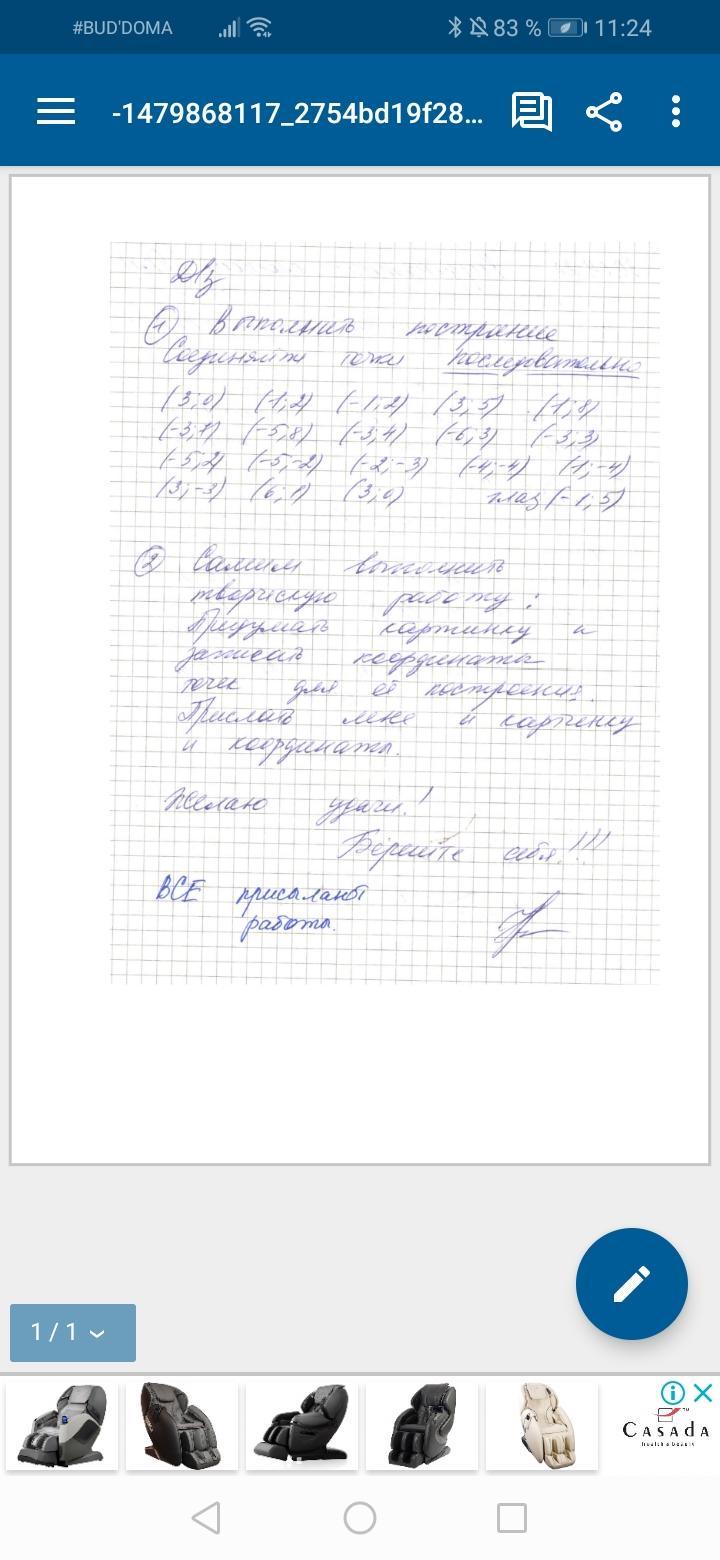 #BUD'DOMA 83 % 11:24
-1479868117_2754bd19f28...
Д/з
1 Выполнить построение
Соединяйте точки последвательно
(3; 0) (1; 2) (-1; 2) (3; 5) (1; 8)
(-3; 7) (-5; 8) (-3; 4) (-6; 3) (-3; 3)
(-5; 2) (-5; -2) (-2; -3) (-4; -4) (1; -4)
(3; -3) (6; 1) (3; 0) глаз (-1; 5)
2 Самим выполнить
творческую работу:
Придумать картинку и
записать координаты
точек для её построения.
Прислать мне и картинку
и координаты.
Желаю удачи!
Берегите себя!!!
ВСЕ присылают
работы.
1 / 1
CASADA
health & beauty